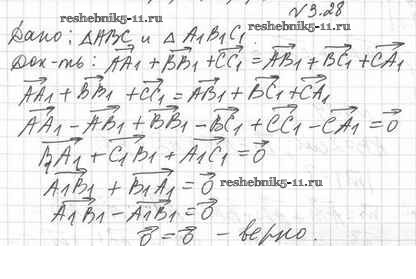 № 3.28
reshebnik5-11.ru
Дано: △ABC и △A1B1C1
Док-ть: AA1 + BB1 + CC1 = AB1 + BC1 + CA1
AA1 + BB1 + CC1 = AB1 + BC1 + CA1
AA1 - AB1 + BB1 - BC1 + CC1 - CA1 = 0
B1A1 + C1B1 + A1C1 = 0
A1B1 + B1A1 = 0
reshebnik5-11.ru
A1B1 - A1B1 = 0
0 = 0 - верно.